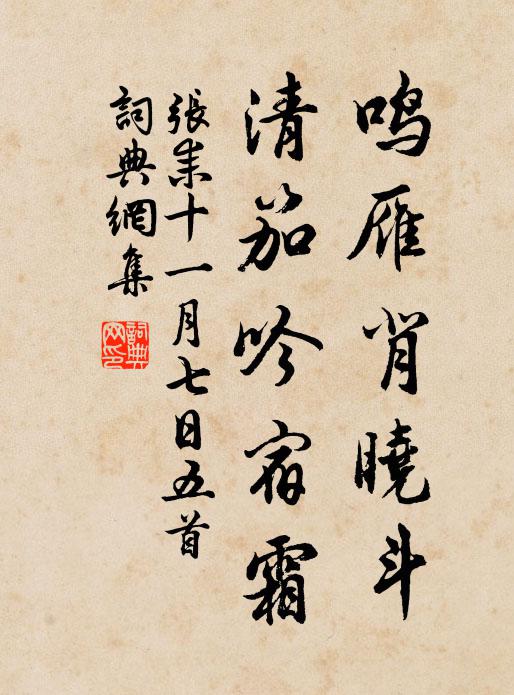 鸣雁背曉斗
清笳吟宿霜
張耒十一月七日五首
詞典網集
詞典网印